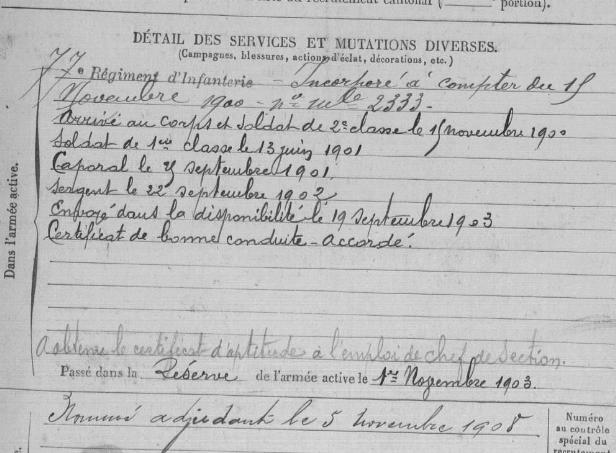 du recrutement cantonal (
portion).
DÉTAIL DES SERVICES ET MUTATIONS DIVERSES.
(Campagnes, blessures, actions d'éclat, décorations, etc.)
77e Régiment d'Infanterie - Incorporé à compter du 15
Novembre 1900 - no mle 2333 -
Arrivé au corps et soldat de 2e classe le 15 novembre 1900
Soldat de 1ere classe le 13 juin 1901
Caporal le septembre 1901
Sergent le 22 septembre 1902
Envoyé dans la disponibilité le 19 septembre 1903
Certificat de bonne conduite - accordé.
Dans l'armée active.
A obtenu le certificat d'aptitude à l'emploi de chef de section.
Passé dans la Réserve de l'armée active le 1er Novembre 1903.
Nommé adjudant le 5 novembre 1908
Numéro
au contrôle
spécial du
recrutement